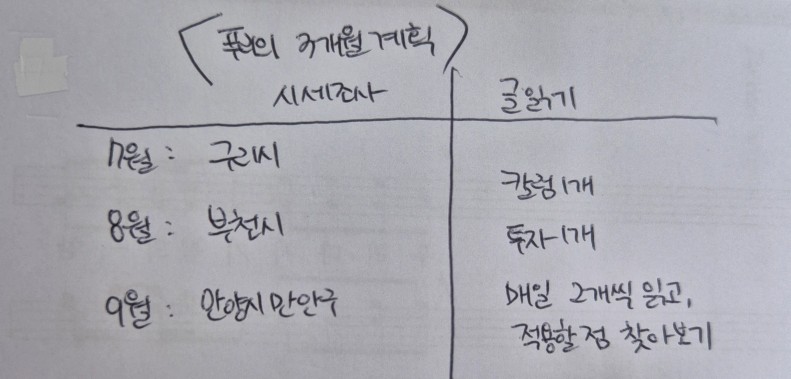 <푸리의 3개월 계획>
시세조사
글읽기
7월 : 구리시
칼럼 1개
8월 : 부천시
투자 1개
9월 : 안양시 만안구
매일 2개씩 읽고,
적용할 점 찾아보기